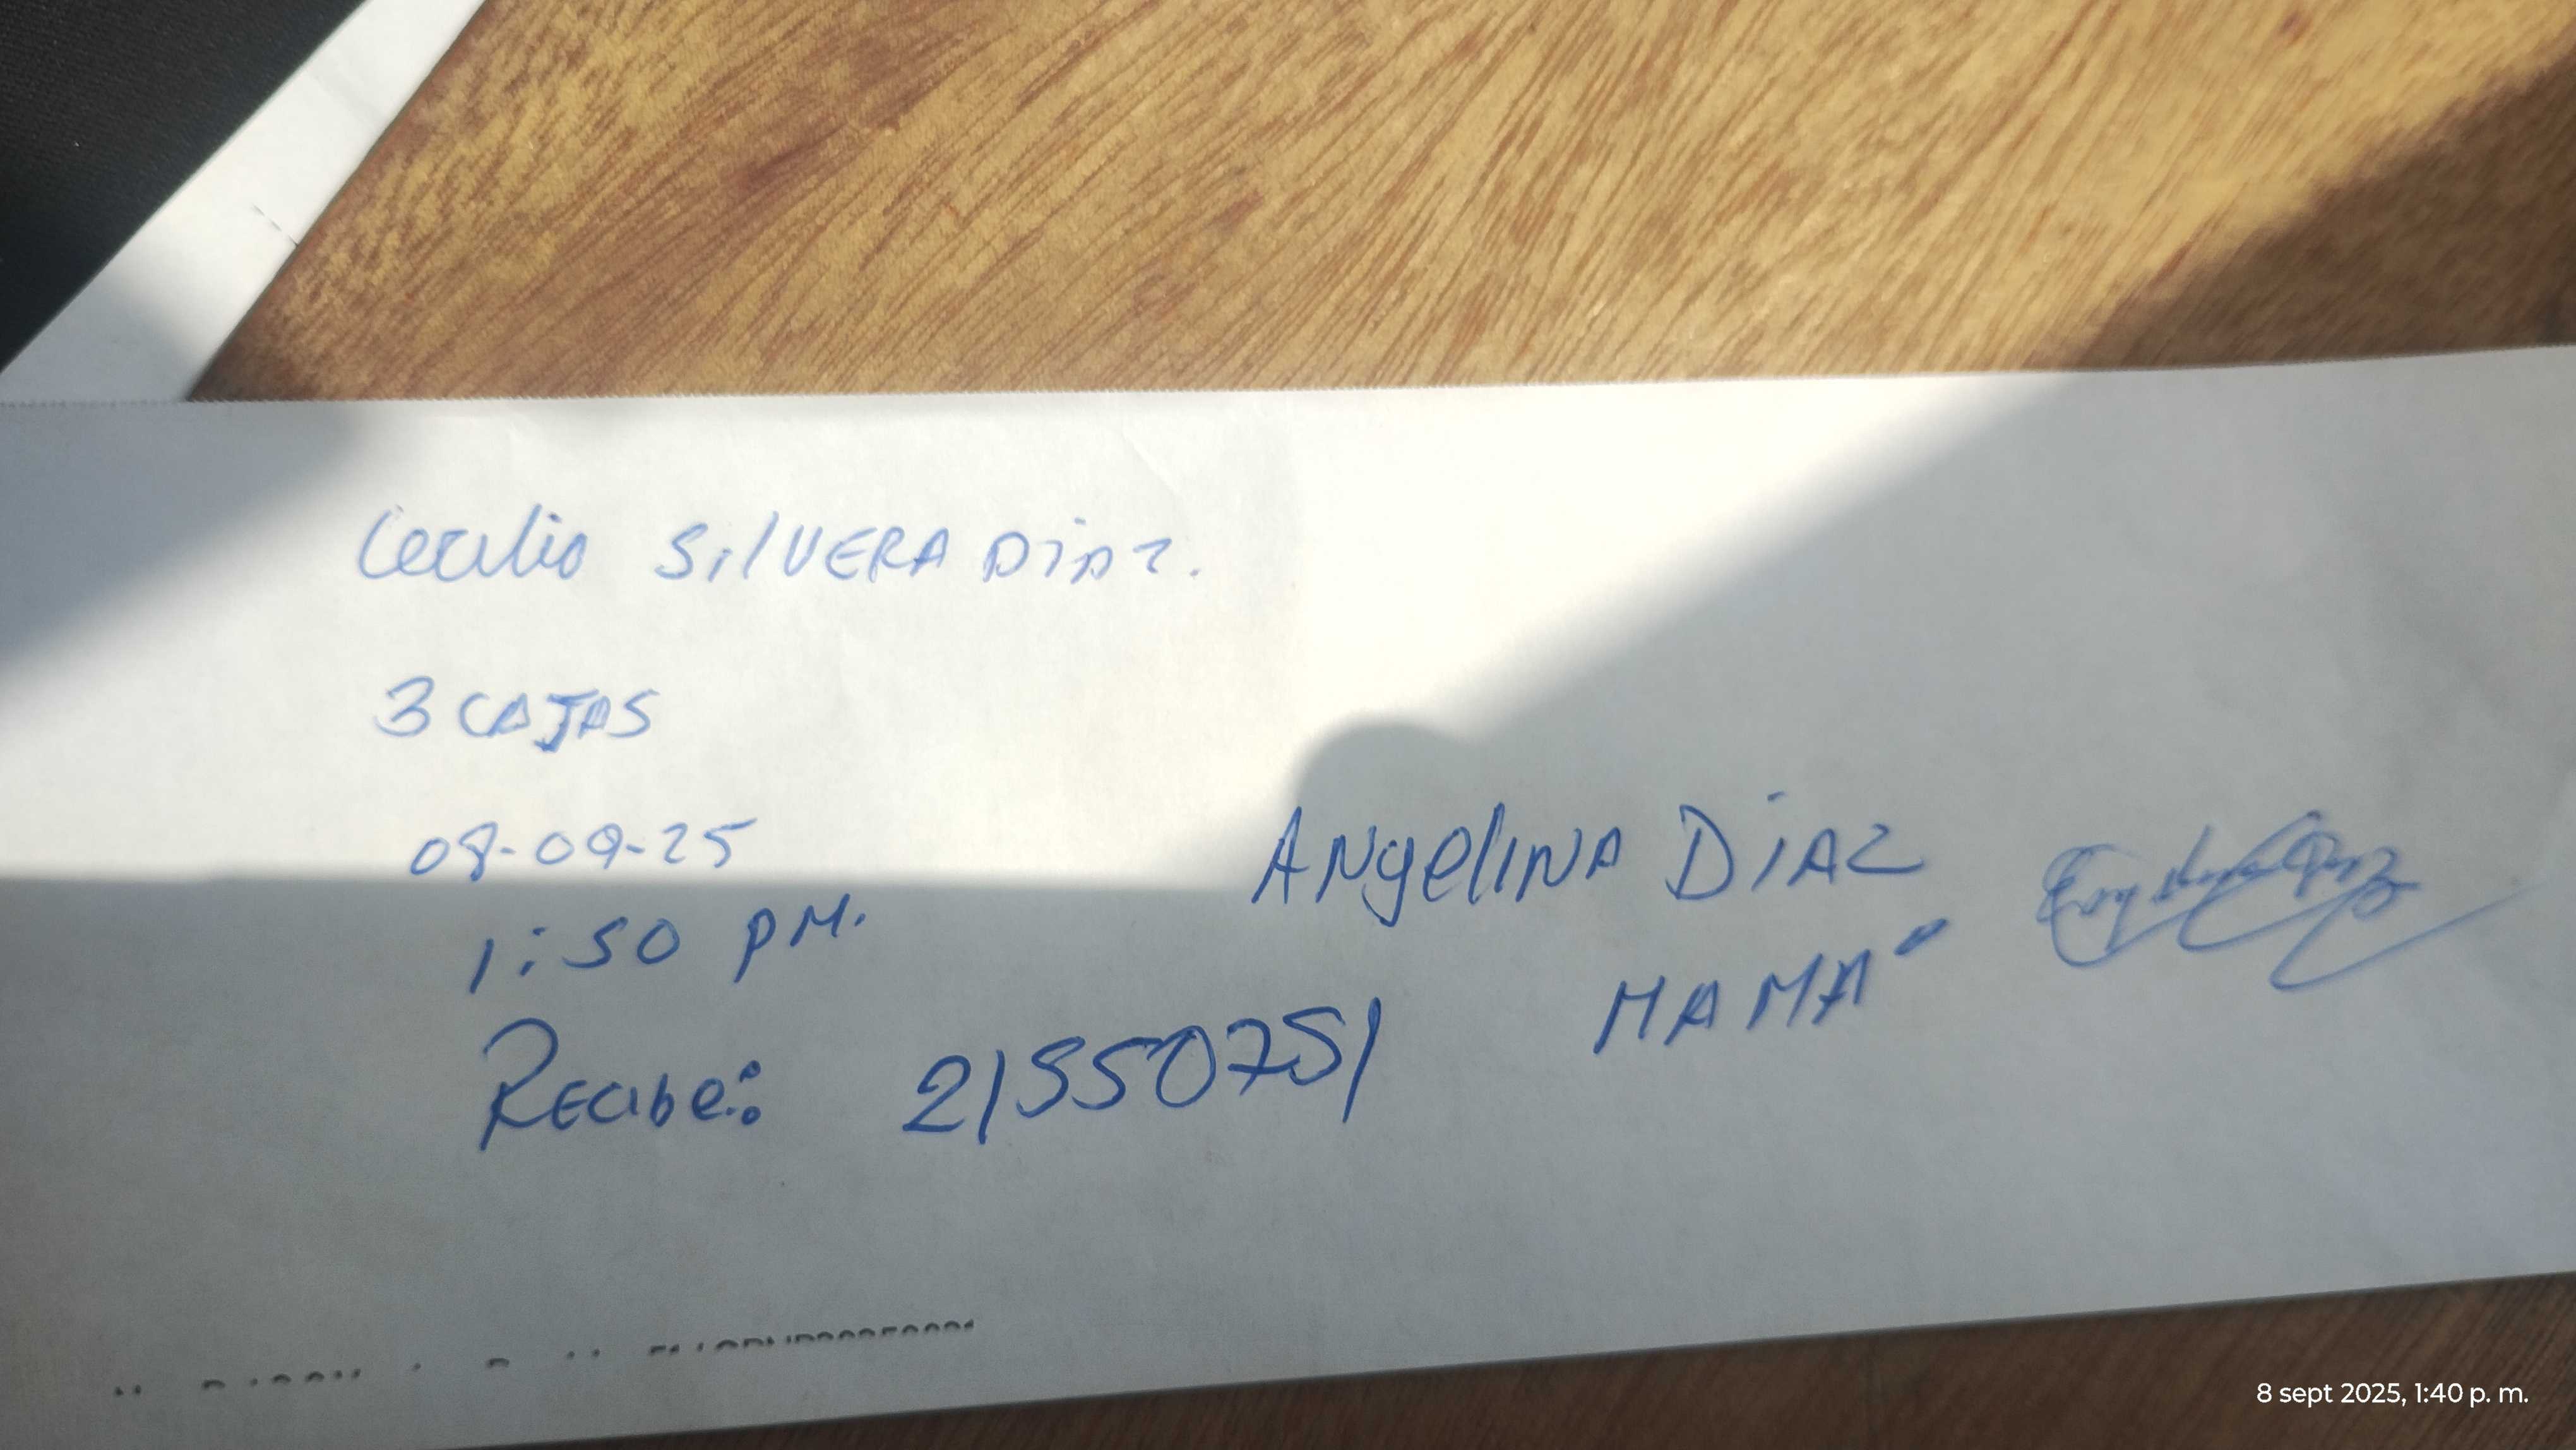 Cecilio SilVERA DiAZ.
3 CAJAS
08-09-25
1:50 PM.
ANgeliNA DiAZ
MAMÁ
Recibe: 21550751
8 sept 2025, 1:40 p. m.